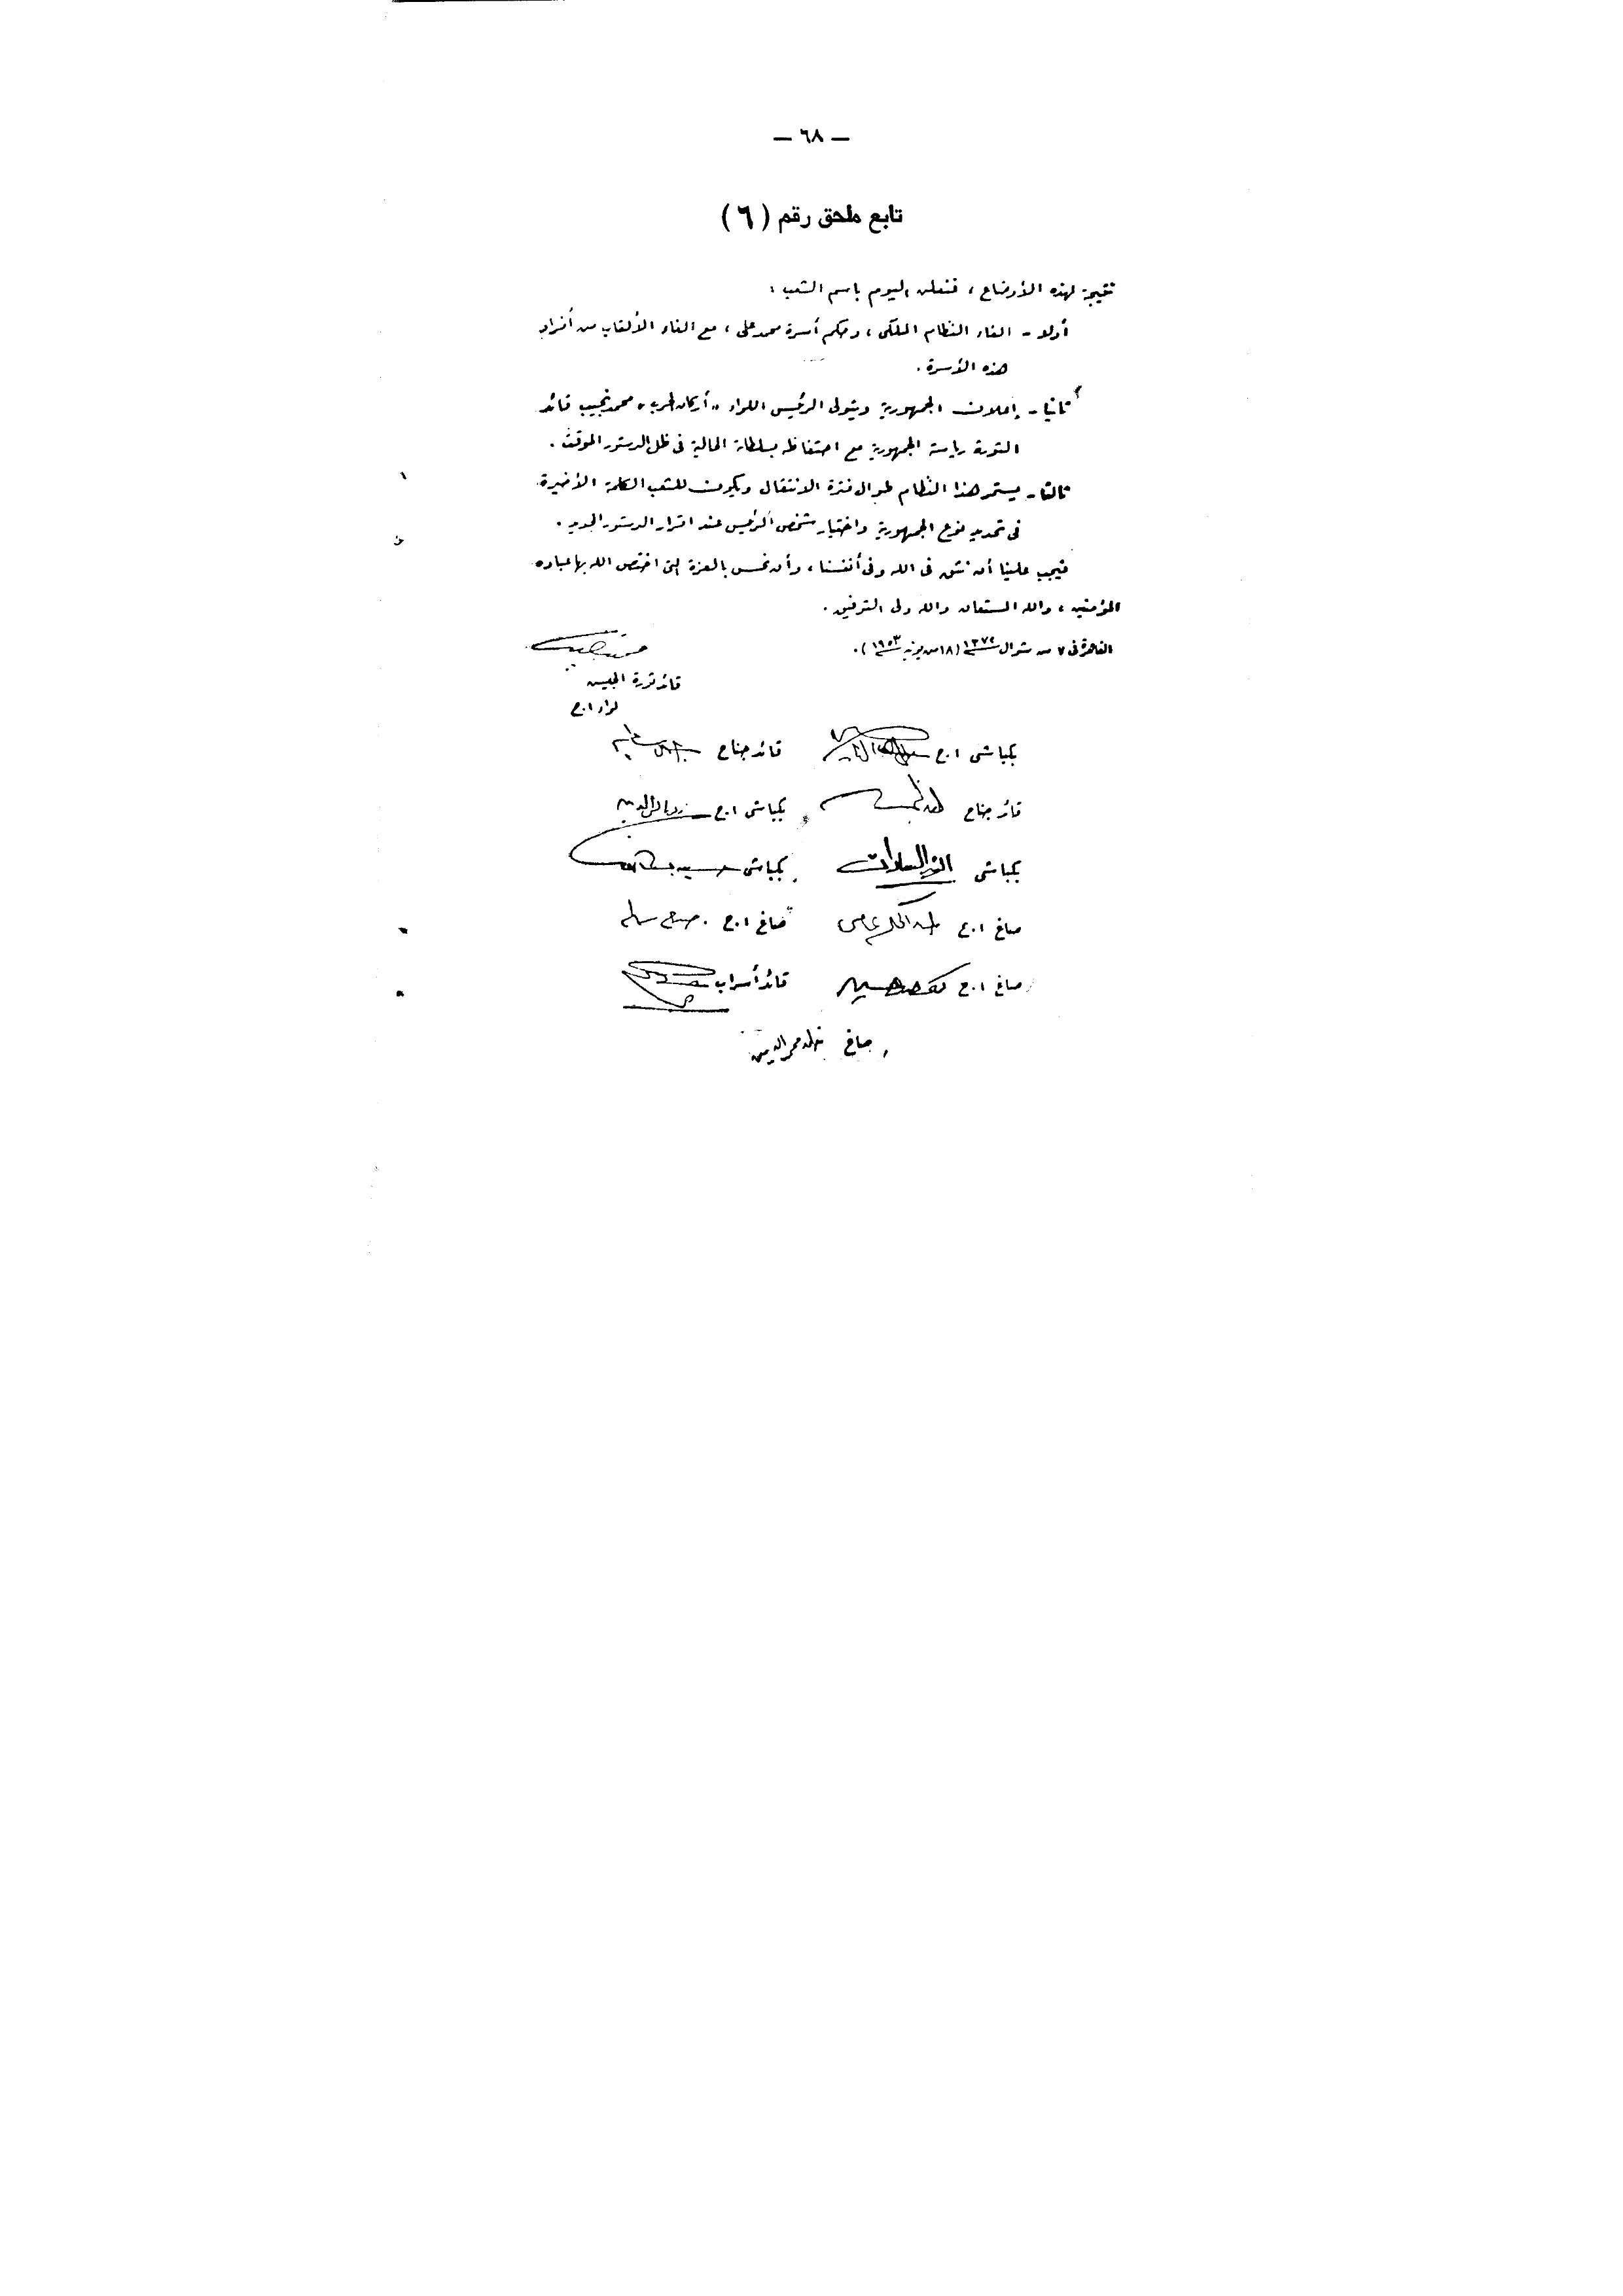 — ٦٨ —
تابع ملحق رقم (٦)
نتيجة لهذه الأوضاع ، فنعلن اليوم باسم الشعب :
أولا - الغاء النظام الملكى ، وحكم أسرة محمد على ، مع الغاء الألقاب من أفراد
هذه الأسرة .
ثانيا - إعلان الجمهورية ويتولى الرئيس اللواء " أركان حرب " محمد نجيب قائد
الثورة رياسة الجمهورية مع احتفاظه بسلطاته الحالية فى ظل الدستور الموقت .
ثالثا - يستمر هذا النظام طوال فترة الانتقال ويكون للشعب الكلمة الأخيرة
فى تحديد نوع الجمهورية واختيار شخص الرئيس عند اقرار الدستور الجديد .
فيجب علينا أن نثق فى الله وفى أنفسنا ، وأن نحس بالعزة التى اختص الله بها عباده
المؤمنين ، والله المستعان والله ولى التوفيق .
القاهرة فى ٧ من شوال ١٣٧٢ (١٨ من يونيه ١٩٥٣) .
قائد ثورة الجيش
لواء ا.ح
بكباشى ا.ح قائد جناح
قائد جناح بكباشى ا.ح
بكباشى أنور السادات بكباشى حسين
صاغ ا.ح عبد الحكيم عامر صاغ ا.ح صلاح سالم
صاغ ا.ح كمال حسين قائد أسراب
صاغ خالد محى الدين